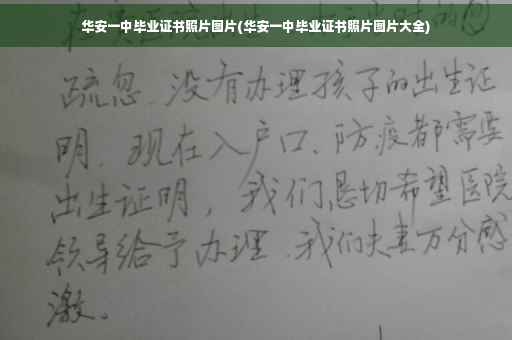 华安一中毕业证书照片图片(华安一中毕业证书照片图片大全)
疏忽、没有办理孩子的出生证
明、现在入户口、防疫都需要
出生证明，我们恳切希望医院
领导给予办理、我们夫妻万分感
激。